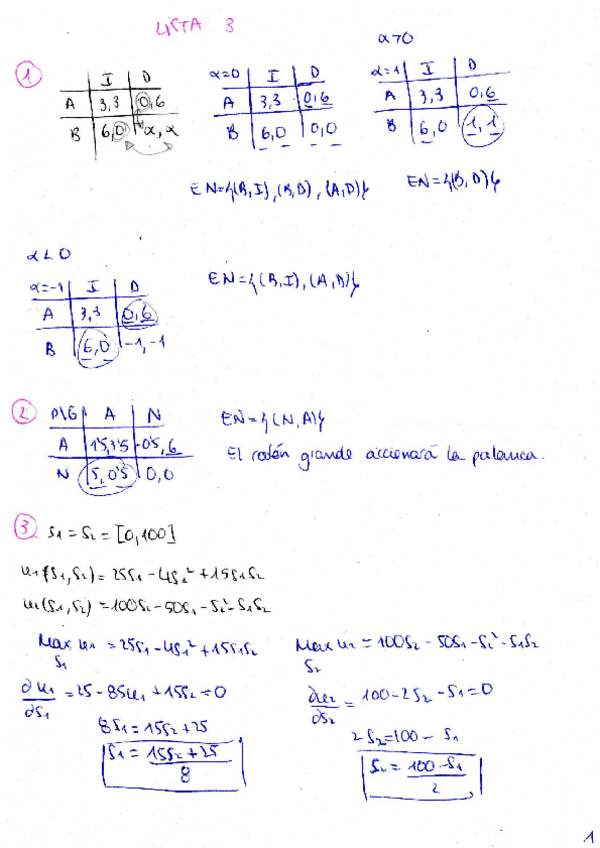 LISTA 3
α>0
1
I D
A 3,3 0,6
B 6,0 α,α
α=0 I D
A 3,3 0,6
B 6,0 0,0
α=1 I D
A 0,6
B 6,0 1,1
EN={(B,I),(B,D),(A,D)}
EN={(B,D)}
α<0
α=-1 I D
A 3,3 0,6
B 6,0 -1,-1
EN={(B,I),(A,D)}
2
P\G A N
A 1'5,3'5 -0'5,6
N 5,0'5 0,0
EN={(N,A)}
El ratón grande accionará la palanca.
3
S1=S2=[0,100]
u1(S1,S2)=25S1-4S1²+15S1S2
u2(S1,S2)=100S2-50S1-S2²-S1S2
Max u1=25S1-4S1²+15S1S2
S1
∂u1/∂S1=25-8S1+15S2=0
8S1=15S2+25
S1=15S2+25/8
Max u2=100S2-50S1-S2²-S1S2
S2
∂u2/∂S2=100-2S2-S1=0
2S2=100-S1
S2=100-S1/2
1